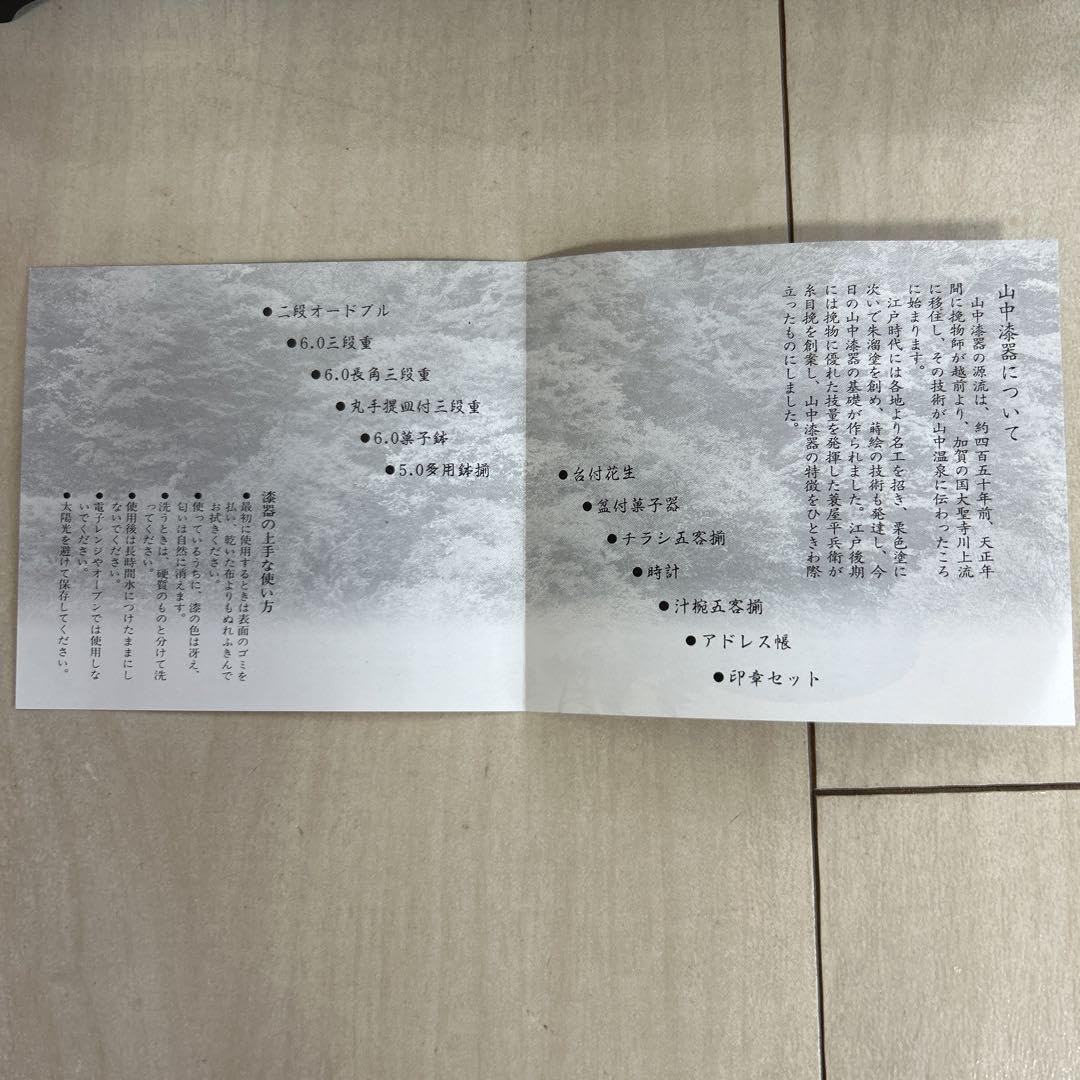 山中漆器について
山中漆器の源流は、約四百五十年前、天正年
間に挽物師が越前より、加賀の国大聖寺川上流
に移住し、その技術が山中温泉に伝わったころ
に始まります。
江戸時代には各地より名工を招き、栗色塗に
次いで朱溜塗を創め、蒔絵の技術も発達し、今
日の山中漆器の基礎が作られました。江戸後期
には挽物に優れた技量を発揮した蓑屋平兵衛が
糸目挽を創案し、山中漆器の特徴をひときわ際
立ったものにしました。
●台付花生
●盆付菓子器
●チラシ五客揃
●時計
●汁椀五客揃
●アドレス帳
●印章セット
●二段オードブル
●6.0三段重
●6.0長角三段重
●丸手提皿付三段重
●6.0菓子鉢
●5.0多用鉢揃
漆器の上手な使い方
●最初に使用するときは表面のゴミを
払い、乾いた布よりもぬれふきんで
お拭きください。
●使っているうちに、漆の色は冴え、
匂いは自然に消えます。
●洗うときは、硬質のものと分けて洗
ってください。
●使用後は長時間水につけたままにし
ないでください。
●電子レンジやオーブンでは使用しな
いでください。
●太陽光を避けて保存してください。